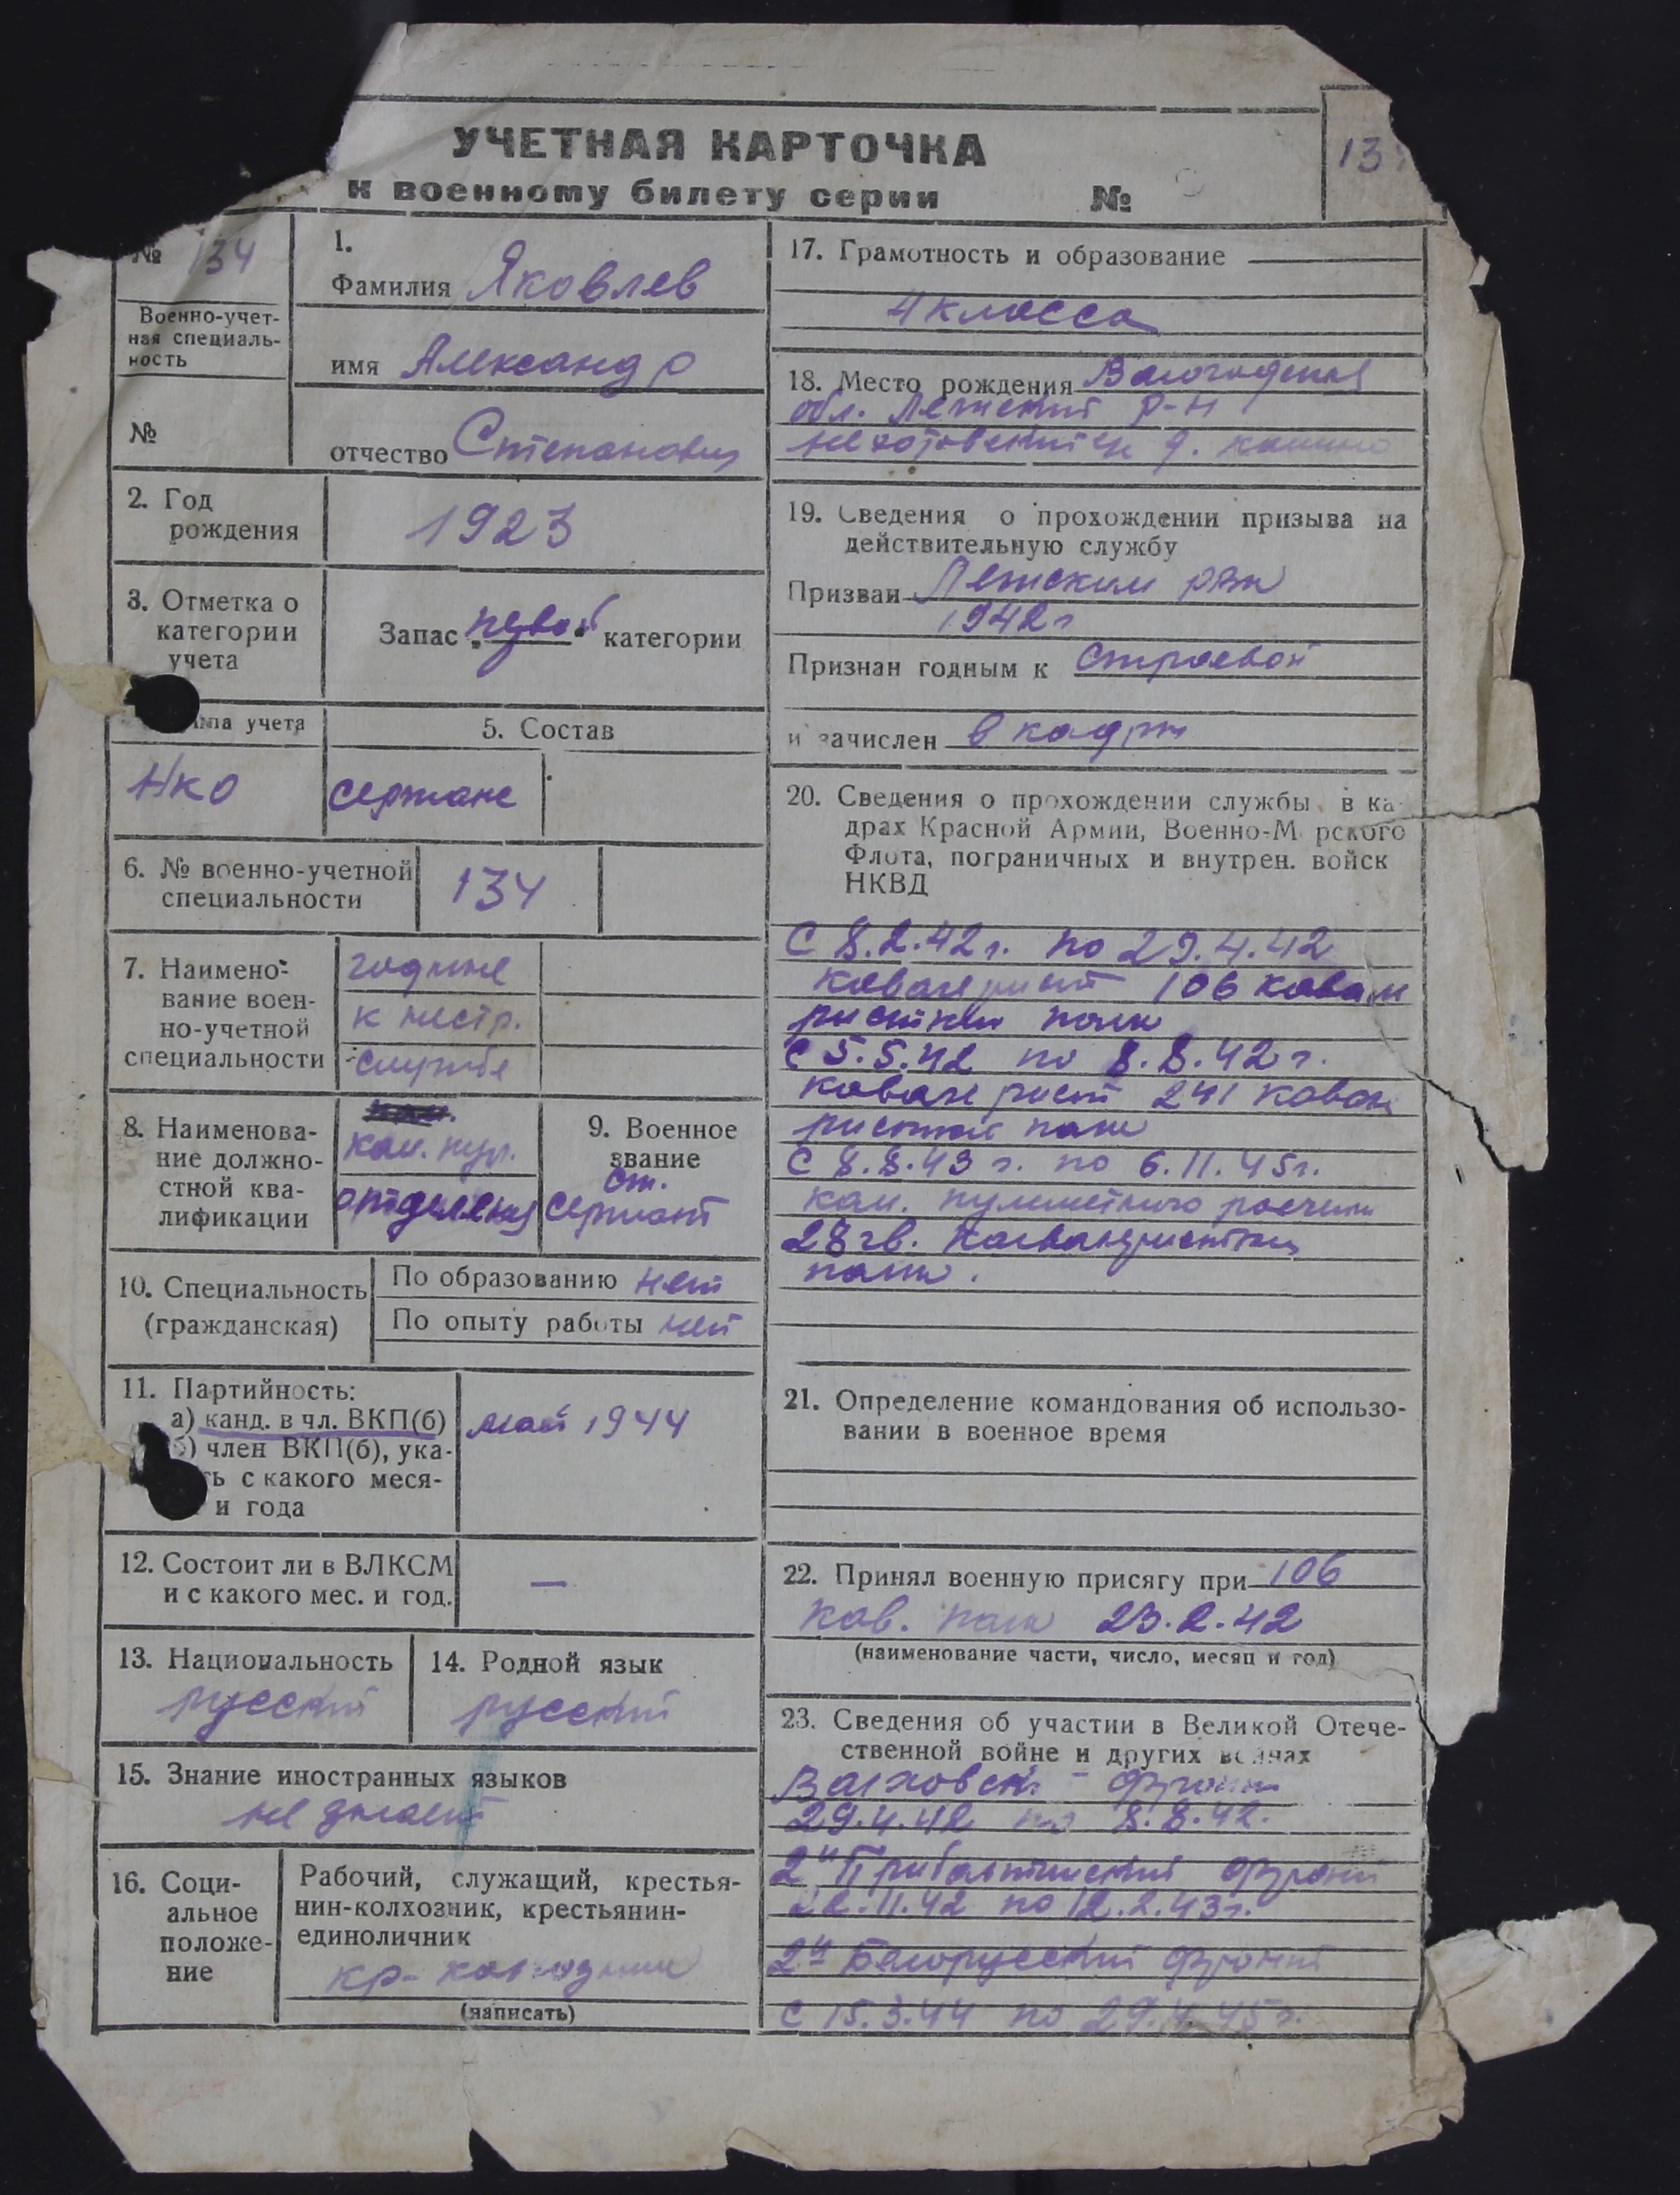 УЧЕТНАЯ КАРТОЧКА
к военному билету серии №
13
№ 134
Военно-учет-
ная специаль-
ность
№
1.
Фамилия Яковлев
имя Александр
отчество Степанович
2. Год
рождения
1923
3. Отметка о
категории
учета
Запас „первой“ категории
па учета
НКО
5. Состав
сержанс
6. № военно-учетной
специальности
134
7. Наимено-
вание воен-
но-учетной
специальности
годные
к нестр.
службе
8. Наименова-
ние должно-
стной ква-
лификации
ком. пул.
отделения
9. Военное
звание
ст.
сержант
10. Специальность
(гражданская)
По образованию нет
По опыту работы нет
11. Партийность:
а) канд. в чл. ВКП(б)
б) член ВКП(б), ука-
ть с какого меся-
и года
май 1944
12. Состоит ли в ВЛКСМ
и с какого мес. и год.
—
13. Национальность
русский
14. Родной язык
русский
15. Знание иностранных языков
не знает
16. Соци-
альное
положе-
ние
Рабочий, служащий, крестья-
нин-колхозник, крестьянин-
единоличник
кр-колхозник
(написать)
17. Грамотность и образование
4 класса
18. Место рождения Вологодская
обл. р-н
д.
19. Сведения о прохождении призыва на
действительную службу
Призван рвк
1942 г
Признан годным к строевой
и зачислен в кадры
20. Сведения о прохождении службы в ка-
драх Красной Армии, Военно-М рского
Флота, пограничных и внутрен. войск
НКВД
С 8.2.42 г. по 29.4.42
кавалерист 106 кавале
ристкий полк
С 5.5.42 по 8.8.42 г.
кавалерист 241 кавале
ристкий полк
С 8.8.43 г. по 6.11.45 г.
ком. пулеметного расчета
28 гв. кавалеристкий
полк.
21. Определение командования об использо-
вании в военное время
22. Принял военную присягу при 106
кав. полк 23.2.42
(наименование части, число, месяц и год)
23. Сведения об участии в Великой Отече-
ственной войне и других войнах
Волховский фронт
29.4.42 по 8.8.42.
2й Прибалтийский фронт
22.11.42 по 12.2.43 г.
2й Белорусский фронт
С 15.3.44 по 29.4.45 г.